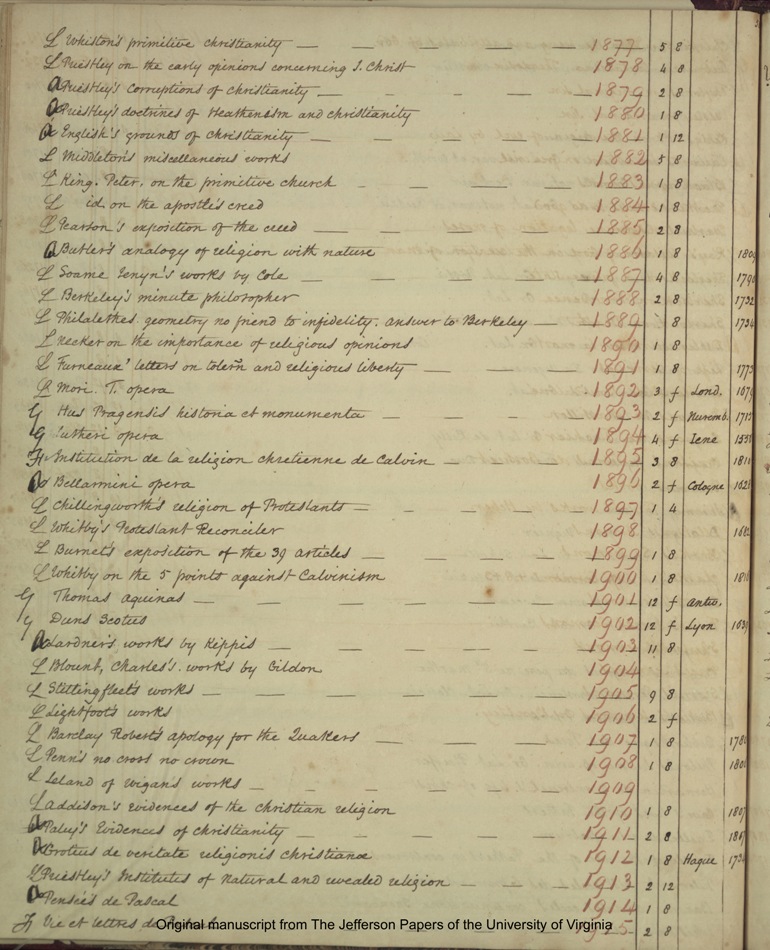 L Whiston's primitive christianity — — — 1877 5 8
L Priestley on the early opinions concerning J. Christ 1878 4 8
a Priestley's corruptions of christianity — — — 1879 2 8
a Priestley's doctrines of Heathenism and christianity 1880 1 8
a English's grounds of christianity — — — 1881 1 12
L Middleton's miscellaneous works 1882 5 8
L King. Peter. on the primitive church — — — 1883 1 8
L id. on the apostle's creed 1884 1 8
L Pearson's exposition of the creed — — — 1885 2 8
a Butler's analogy of religion with nature 1886 1 8
L Soame Jenyn's works by Cole — — — 1887 4 8 1790
L Berkeley's minute philosopher 1888 2 8 1732
L Philalethes. geometry no friend to infidelity. answer to Berkeley — 1889 8 1734
L Necker on the importance of religious opinions 1890 1 8
L Furneaux' letters on tolern and religious liberty — — — 1891 1 8 1773
L Mori. T. opera 1892 3 f Lond. 1679
G Hus Pragensis historia et monumenta — — — 1893 2 f Nuremb. 1715
G Lutheri opera 1894 4 f Iene
Fr Institution de la religion chretienne de Calvin — — — 1895 3 8
a Bellarmini opera 1896 2 f Cologne
L Chillingworth's religion of Protestants — — — 1897 1 4
L Whitby's Protestant Reconciler 1898 1682
L Burnet's exposition of the 39 articles — — — 1899 1 8
L Whitby on the 5 points against Calvinism 1900 1 8
G Thomas Aquinas — — — 1901 12 f Antw.
G Duns Scotus 1902 12 f Lyon 1639
a Lardner's works by Kippis — — — 1903 11 8
L Blount, Charles's. works by Gildon 1904
L Stillingfleet's works — — — 1905 9 8
L Lightfoot's works 1906 2 f
L Barclay Robert's apology for the Quakers — — — 1907 1 8
L Penn's no cross no crown 1908 1 8
L Leland of Wigan's works — — — 1909
L Addison's evidences of the christian religion 1910 1 8 1807
a Paley's Evidences of christianity — — — 1911 2 8 1807
a Grotius de veritate religionis christianæ 1912 1 8 Hague
L Priestley's Institutes of natural and revealed religion — — — 1913 2 12
a Pensées de Pascal 1914 1 8
Fr Vie et lettres de 1915 2 8
Original manuscript from The Jefferson Papers of the University of Virginia